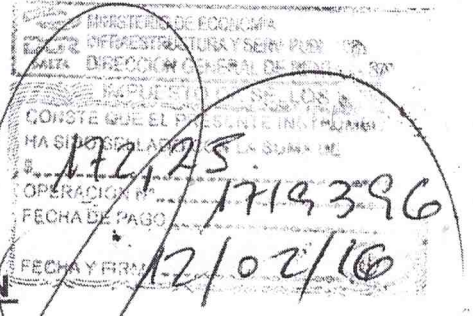 MINISTERIO DE ECONOMIA
INFRAESTRUCTURA Y SERV. PUB.
SALTA DIRECCION GENERAL DE
IMPUESTO SELLOS
CONSTE QUE EL PRESENTE INSTRUMENTO
HA SIDO SELLADO LA SUMA DE
$ 172,25
OPERACION Nº 1719396
FECHA DE PAGO
FECHA Y FIRMA 12/02/16